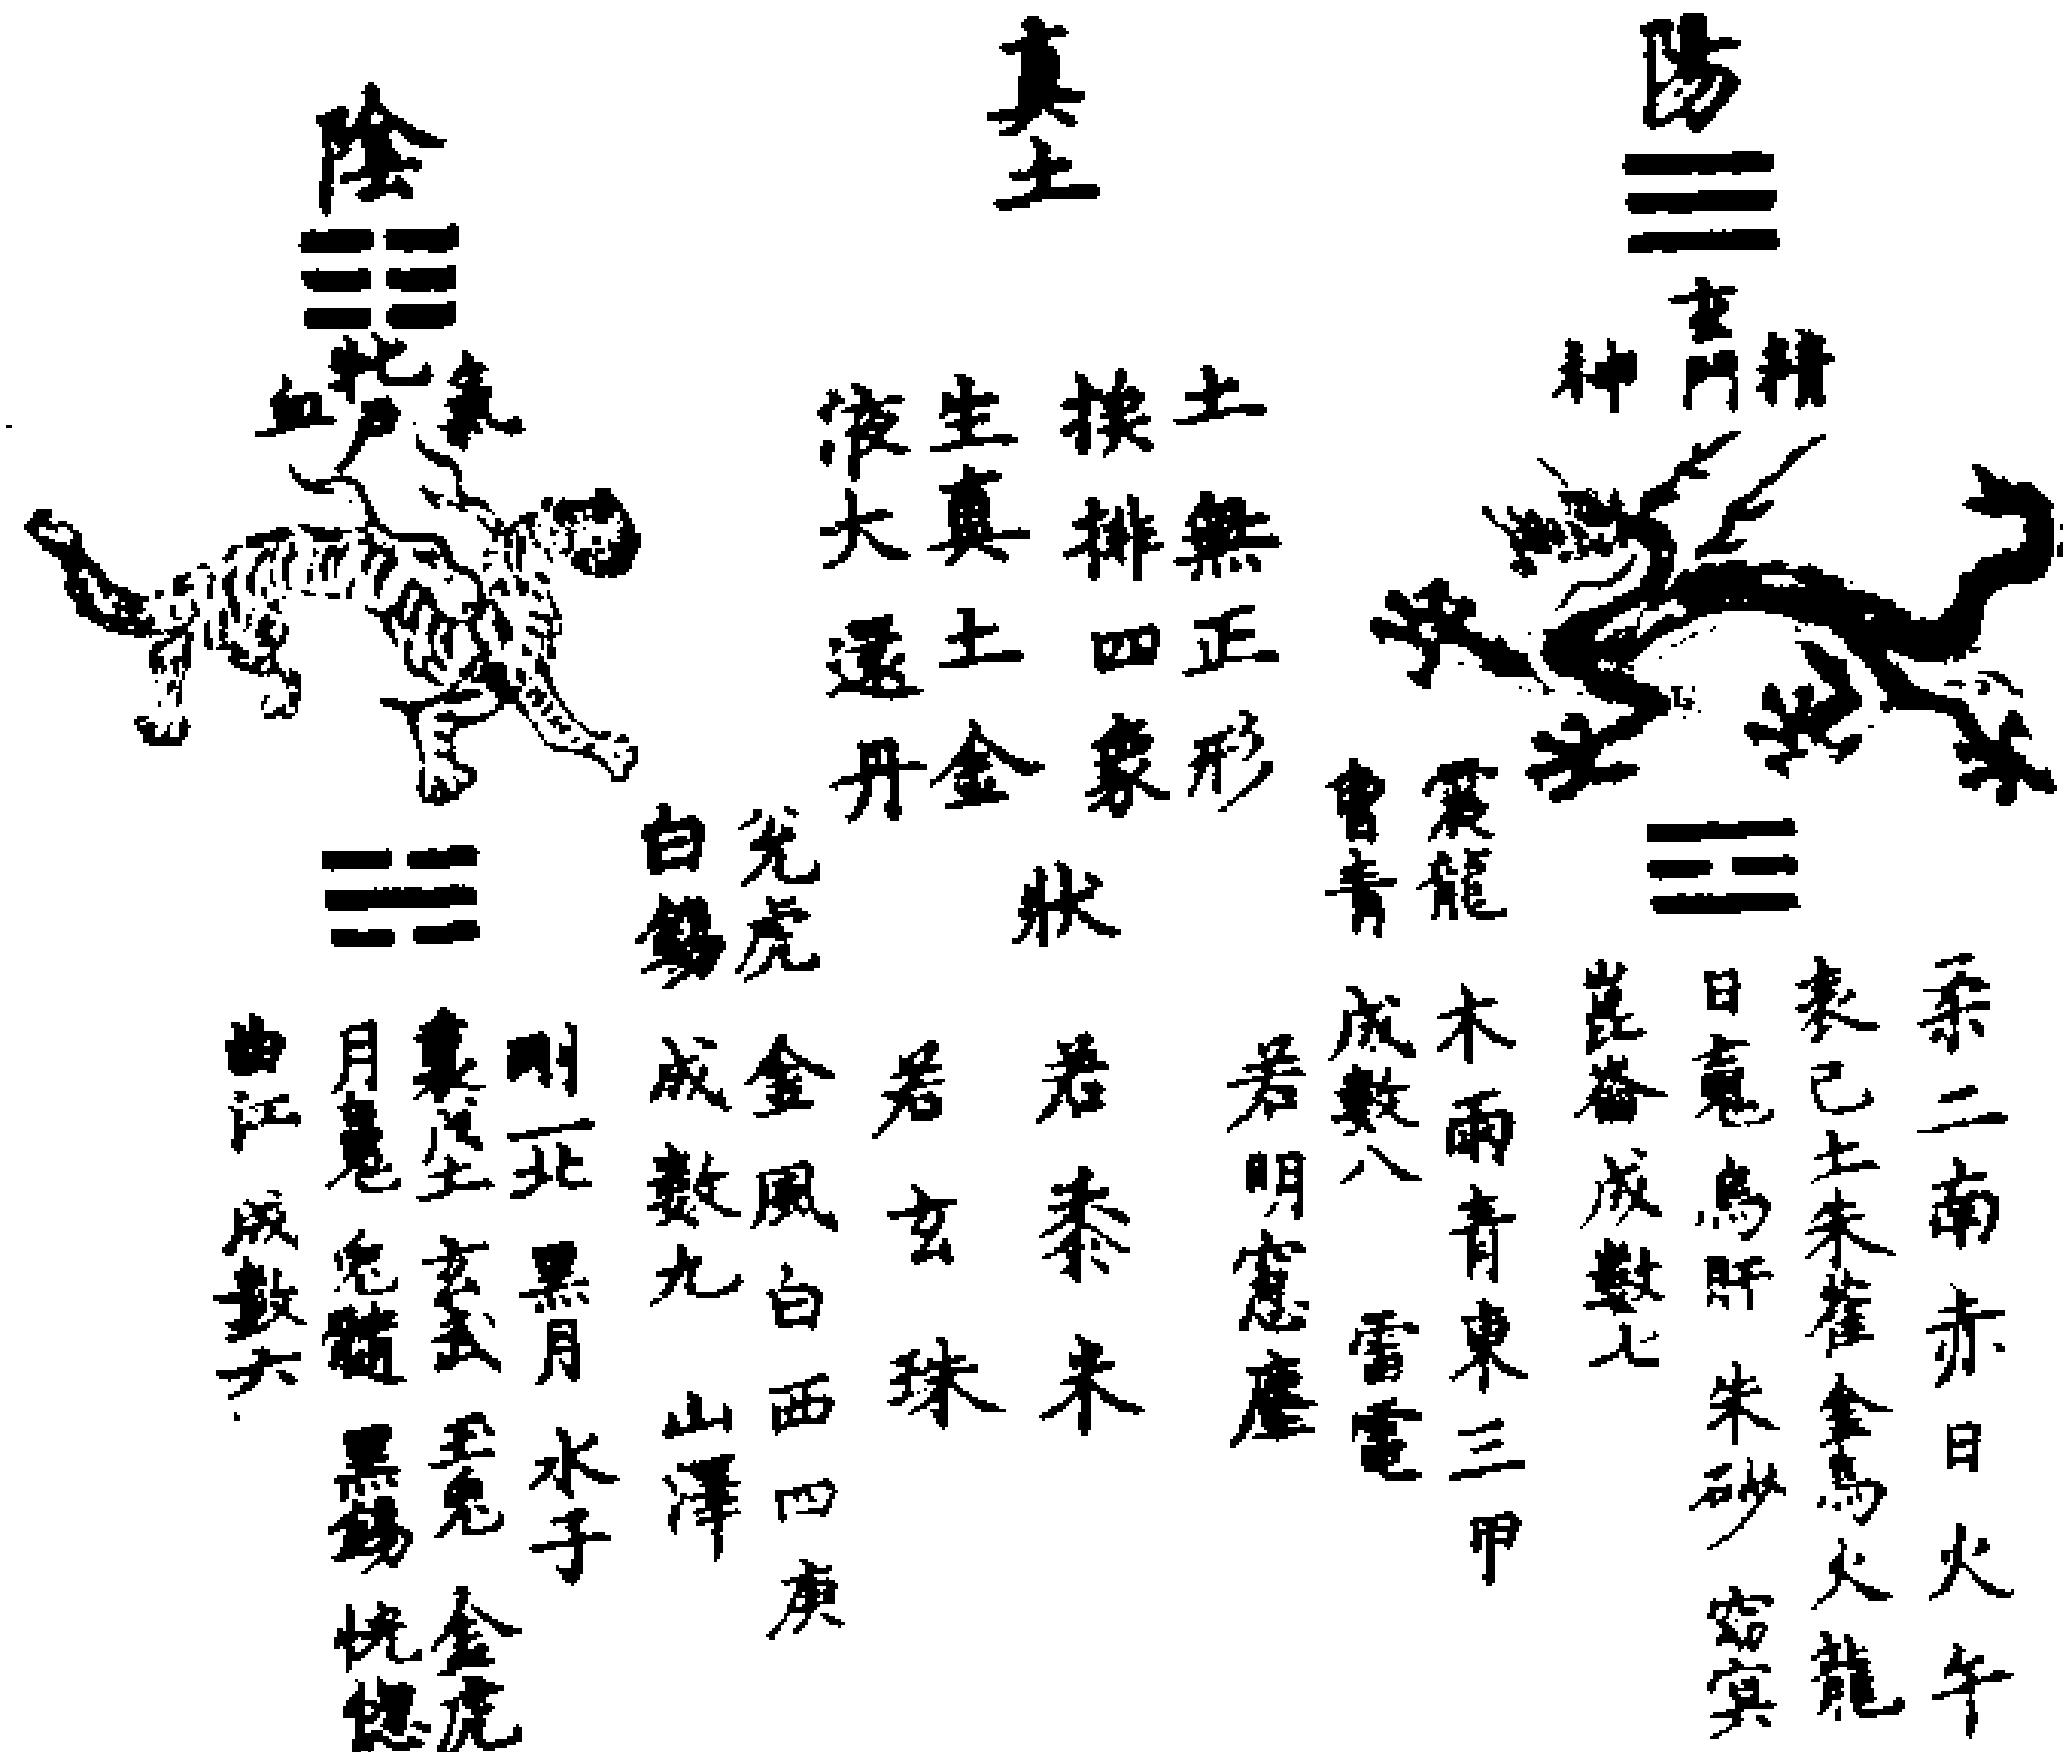 陽
玄門
精
神
震龍
曾青
柔二南赤日火午
表己土朱雀金烏火龍
日魂烏肝朱砂窈冥
崑崙成數七
木雨青東三甲
成數八雷電
真土
土無正形
挨排四象
生真土金
液大還丹
狀
若明窓塵
若黍米
若玄珠
陰
牝戶
氣
血
兌虎
白錫
金風白西四庚
成數九山澤
剛一北黑月水子
裏戊土玄武玉兔金虎
月魄兔髓黑錫恍惚
曲江成數六